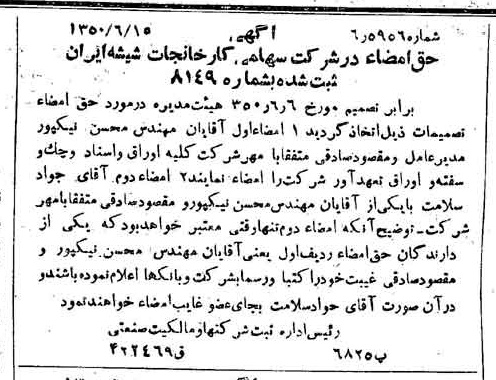 شماره ۶٫۵۹۵۶ آگهی ۱۳۵۰/۶/۱۵
حق امضاء در شرکت سهامی کارخانجات شیشه ایران
ثبت شده بشماره ۸۱۴۹
برابر تصمیم مورخ ۳۵۰٫۶٫۶ هیئت مدیره درمورد حق امضاء
تصمیمات ذیل اتخاذ گردید ۱ امضاء اول آقایان مهندس محسن نیکپور
مدیرعامل و مقصود صادقی متفقابا مهر شرکت کلیه اوراق واسناد وچك و
سفته و اوراق تعهد آور شرکت را امضاء نمایند ۲ امضاء دوم آقای جواد
سلامت بایکی از آقایان مهندس محسن نیکپورو مقصود صادقی متفقابامهر
شرکت - توضیح آنکه امضاء دوم تنها وقتی معتبر خواهد بود که یکی از
دارندگان حق امضاء ردیف اول یعنی آقایان مهندس محسن نیکپور و
مقصود صادقی غیبت خود را کتبا و رسما بشرکت و بانکها اعلام نموده باشند و
در آن صورت آقای جواد سلامت بجای عضو غایب امضاء خواهند نمود
رئیس اداره ثبت شرکتها و مالکیت صنعتی
پ ۶۸۲۵ ق ۴۲۲۴۶۹